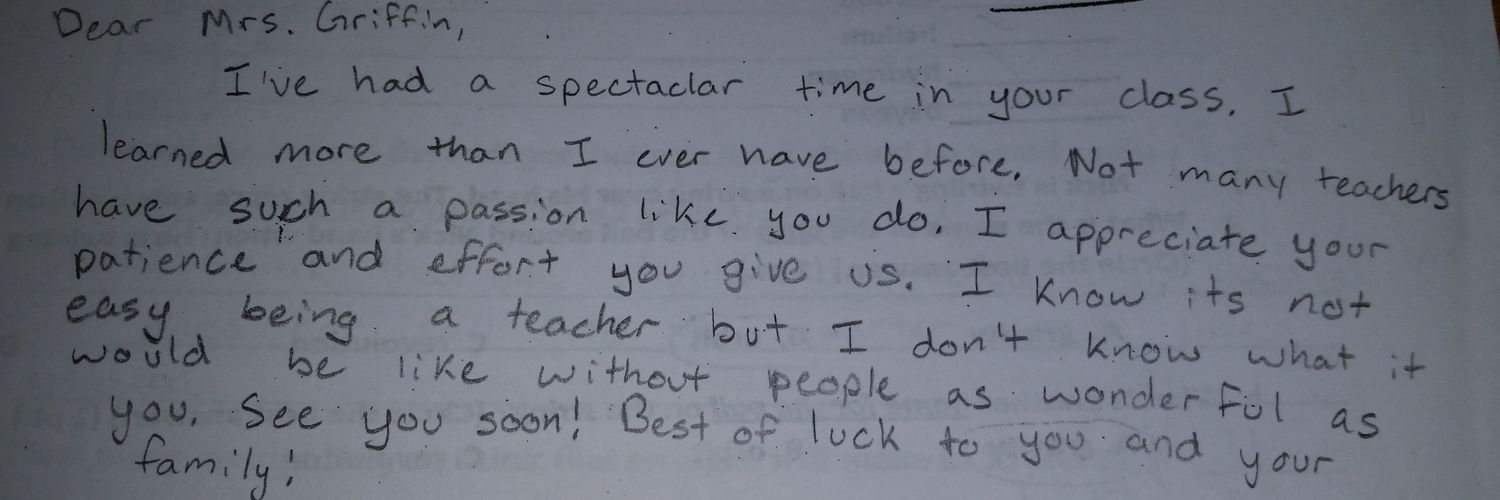 Dear Mrs. Griffin,
I've had a spectaclar time in your class. I
learned more than I ever have before. Not many teachers
have such a passion like you do. I appreciate your
patience and effort you give us. I know its not
easy being a teacher but I don't know what it
would be like without people as wonderful as
you. See you soon! Best of luck to you and your
family!